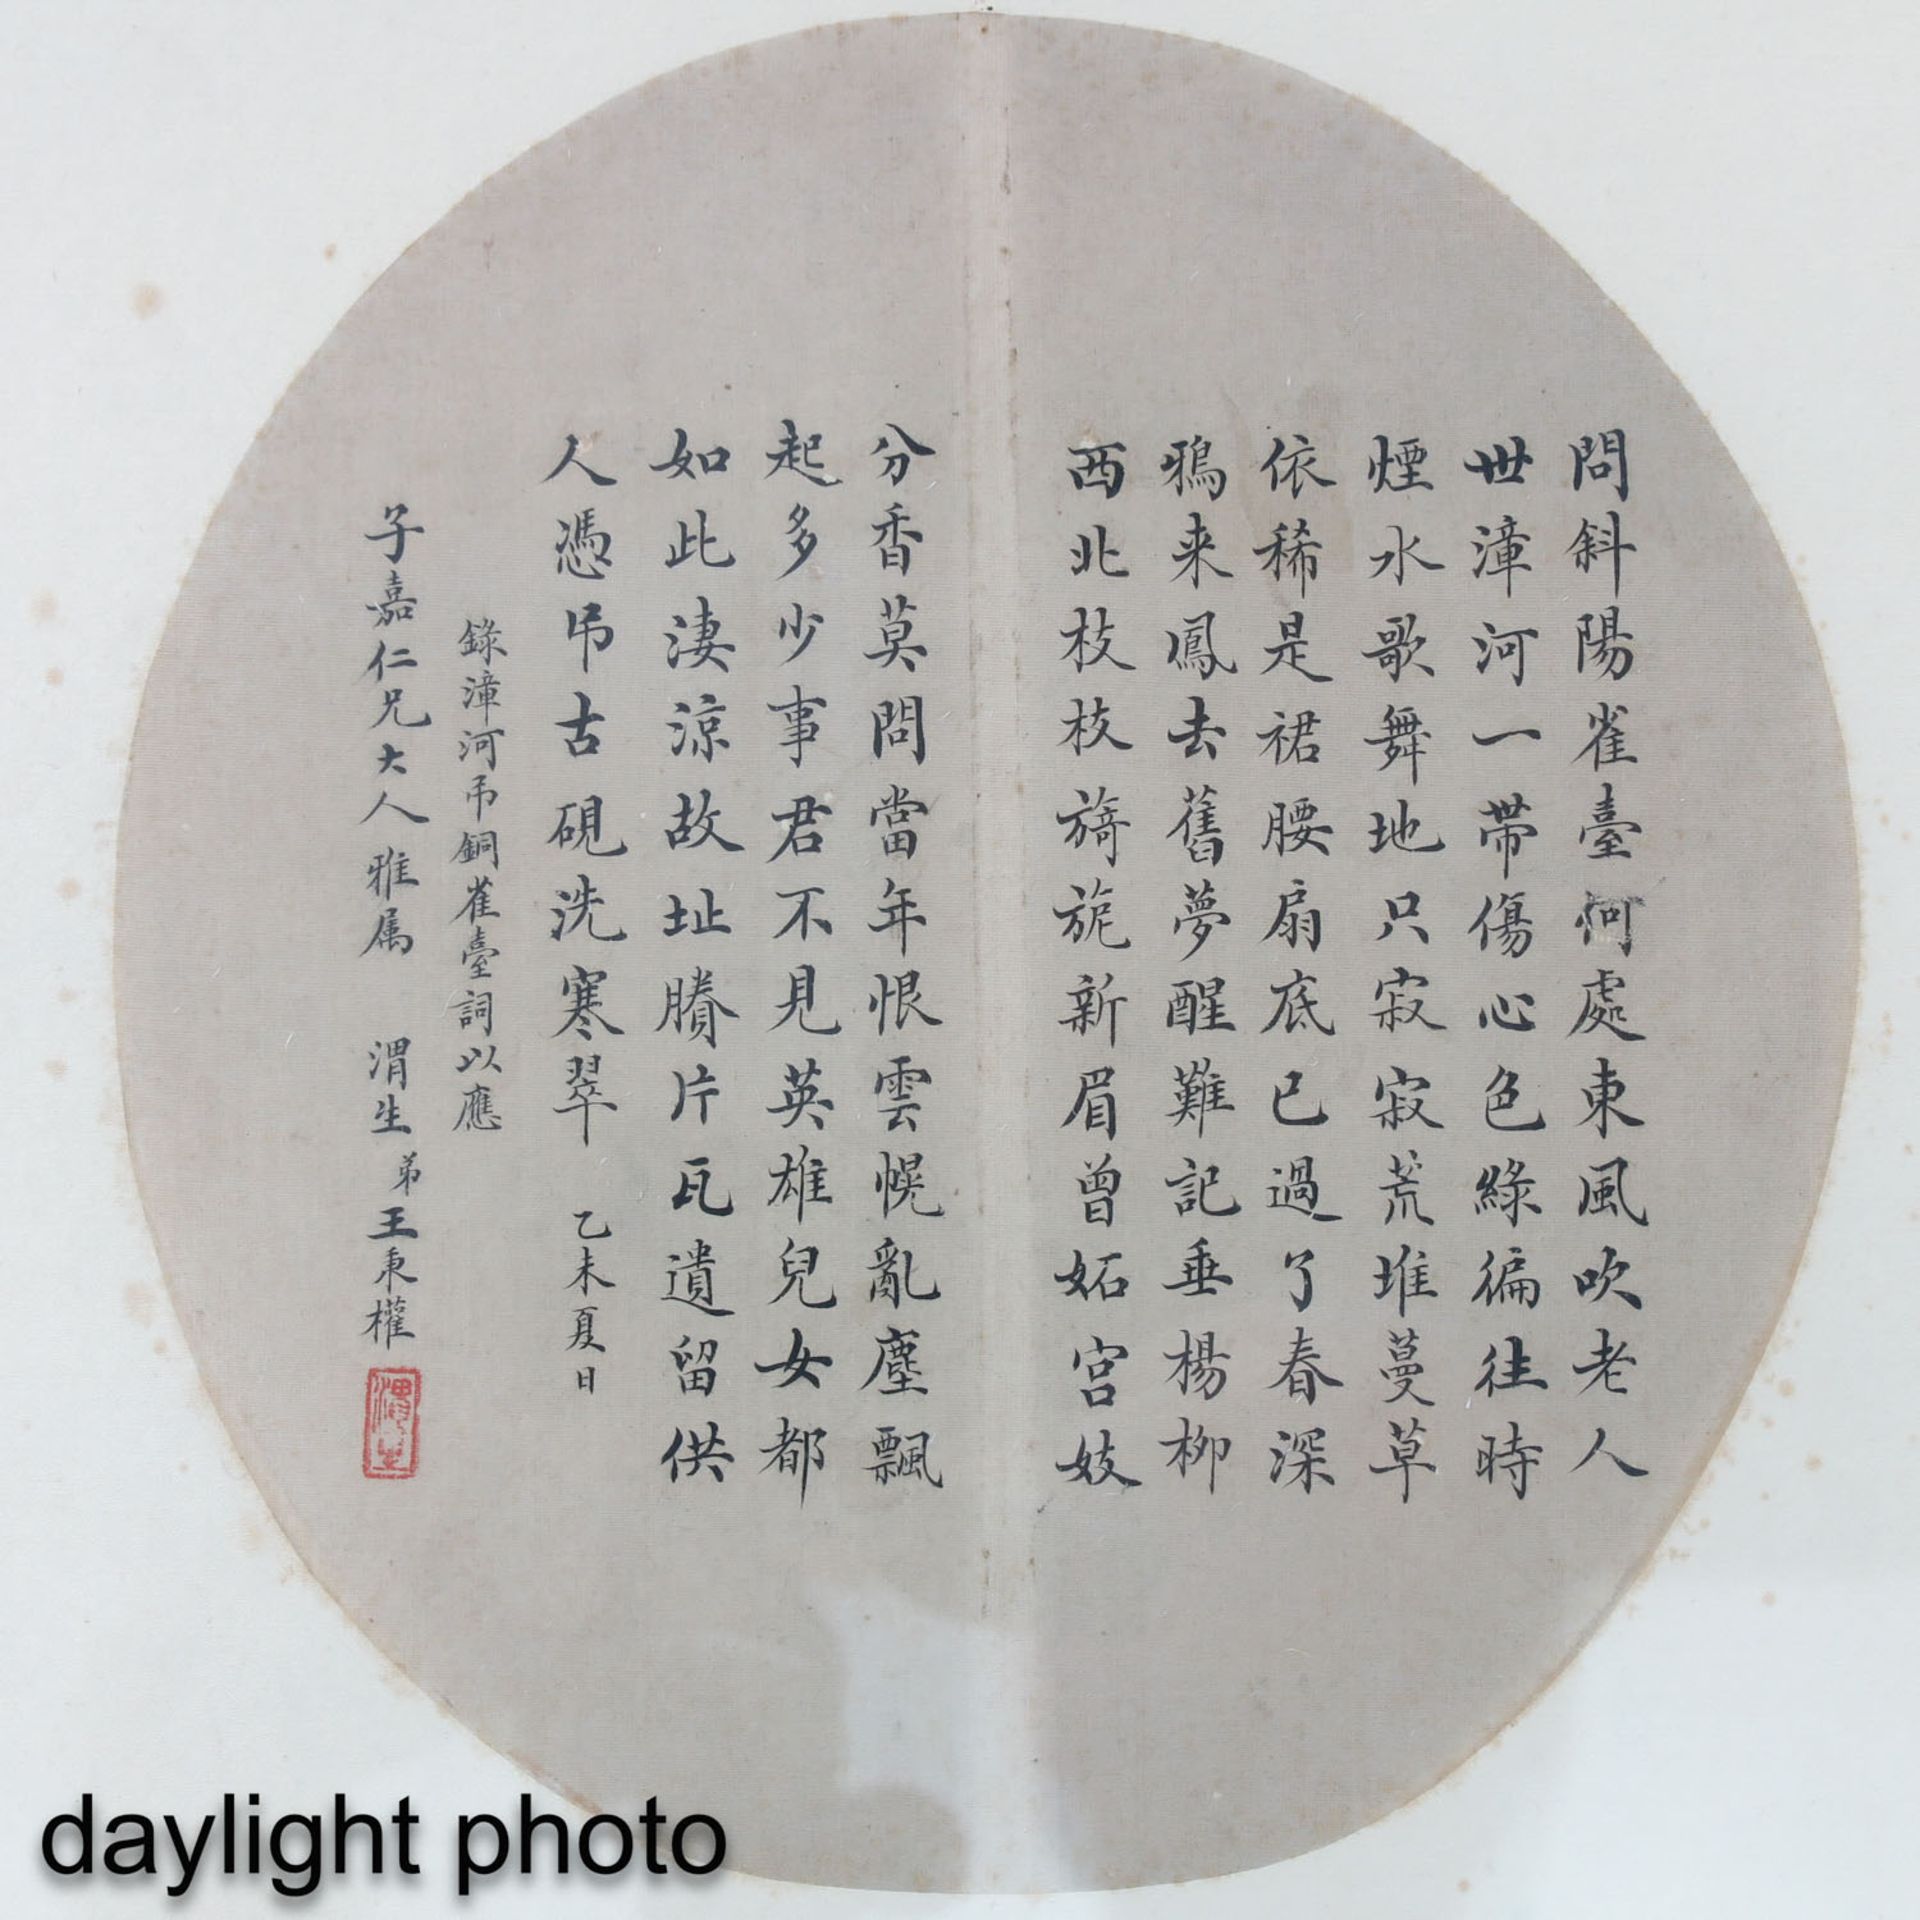 問斜陽雀臺何處東風吹老人
世漳河一帶傷心色綠徧往時
煙水歌舞地只寂寂荒堆蔓草
依稀是裙腰扇底已過了春深
鴉来鳳去舊夢醒難記垂楊柳
西北枝枝旖旎新眉曾妬宮妓
分香莫問當年恨雲幌亂塵飄
起多少事君不見英雄兒女都
如此淒涼故址賸片瓦遺留供
人憑吊古硯洗寒翠 乙未夏日
錄漳河吊銅雀臺詞以應
子嘉仁兄大人雅属 渭生弟王秉權
渭生
daylight photo